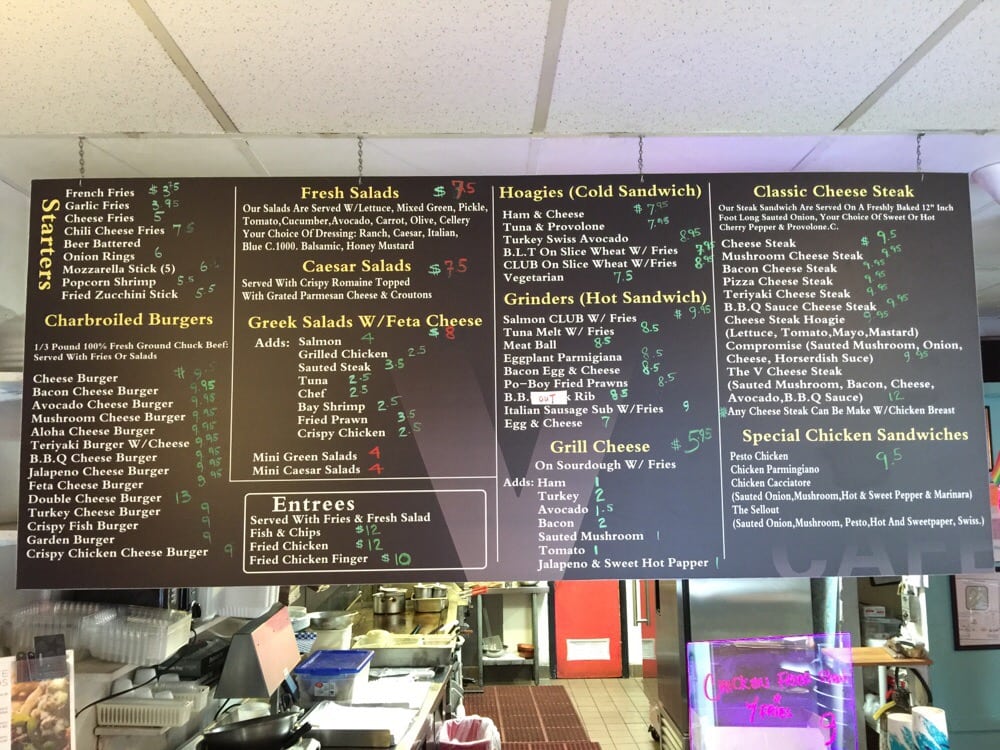 Starters
French Fries $ 3.75
Garlic Fries 3.95
Cheese Fries 5
Chili Cheese Fries 7.5
Beer Battered
Onion Rings 6
Mozzarella Stick (5) 6.
Popcorn Shrimp 5.5
Fried Zucchini Stick 5.5
Charbroiled Burgers
1/3 Pound 100% Fresh Ground Chuck Beef:
Served With Fries Or Salads
Cheese Burger $ 9.5
Bacon Cheese Burger 9.95
Avocado Cheese Burger 9.95
Mushroom Cheese Burger 9.95
Aloha Cheese Burger 9.95
Teriyaki Burger W/Cheese 9.95
B.B.Q Cheese Burger 9.95
Jalapeno Cheese Burger 9.95
Feta Cheese Burger 9.95
Double Cheese Burger 13
Turkey Cheese Burger 9
Crispy Fish Burger 9
Garden Burger 9
Crispy Chicken Cheese Burger 9
Fresh Salads $ 7.5
Our Salads Are Served W/Lettuce, Mixed Green, Pickle,
Tomato,Cucumber,Avocado, Carrot, Olive, Cellery
Your Choice Of Dressing: Ranch, Caesar, Italian,
Blue C.1000. Balsamic, Honey Mustard
Caesar Salads $7.5
Served With Crispy Romaine Topped
With Grated Parmesan Cheese & Croutons
Greek Salads W/Feta Cheese
$ 8
Adds: Salmon 4
Grilled Chicken 2.5
Sauted Steak 3.5
Tuna 2.5
Chef 2.5
Bay Shrimp 2.5
Fried Prawn 3.5
Crispy Chicken 2.5
Mini Green Salads 4
Mini Caesar Salads 4
Entrees
Served With Fries & Fresh Salad
Fish & Chips $12
Fried Chicken $12
Fried Chicken Finger $10
Hoagies (Cold Sandwich)
Ham & Cheese $ 7.95
Tuna & Provolone 7.95
Turkey Swiss Avocado 8.95
B.L.T On Slice Wheat W/ Fries 7.95
CLUB On Slice Wheat W/Fries 8.95
Vegetarian 7.5
Grinders (Hot Sandwich)
Salmon CLUB W/ Fries $ 9.95
Tuna Melt W/ Fries 8.5
Meat Ball 8.5
Eggplant Parmigiana 8.5
Bacon Egg & Cheese 8.5
Po-Boy Fried Prawns 8.5
B.B. OUT k Rib 8.5
Italian Sausage Sub W/Fries 9
Egg & Cheese 7
Grill Cheese $ 5.95
On Sourdough W/ Fries
Adds: Ham 1
Turkey 2
Avocado 1.5
Bacon 2
Sauted Mushroom 1
Tomato 1
Jalapeno & Sweet Hot Papper 1
Classic Cheese Steak
Our Steak Sandwich Are Served On A Freshly Baked 12" Inch
Foot Long Sauted Onion, Your Choice Of Sweet Or Hot
Cherry Pepper & Provolone.C.
Cheese Steak $ 9.5
Mushroom Cheese Steak 9.95
Bacon Cheese Steak 9.95
Pizza Cheese Steak 9.95
Teriyaki Cheese Steak 9.95
B.B.Q Sauce Cheese Steak 9.95
Cheese Steak Hoagie 9.95
(Lettuce, Tomato,Mayo,Mastard)
Compromise (Sauted Mushroom, Onion,
Cheese, Horserdish Suce) 9.95
The V Cheese Steak
(Sauted Mushroom, Bacon, Cheese,
Avocado,B.B.Q Sauce) 12
*Any Cheese Steak Can Be Make W/Chicken Breast
Special Chicken Sandwiches
Pesto Chicken 9.5
Chicken Parmingiano
Chicken Cacciatore
(Sauted Onion,Mushroom,Hot & Sweet Pepper & Marinara)
The Sellout
(Sauted Onion,Mushroom, Pesto,Hot And Sweetpaper, Swiss.)
V CAFE